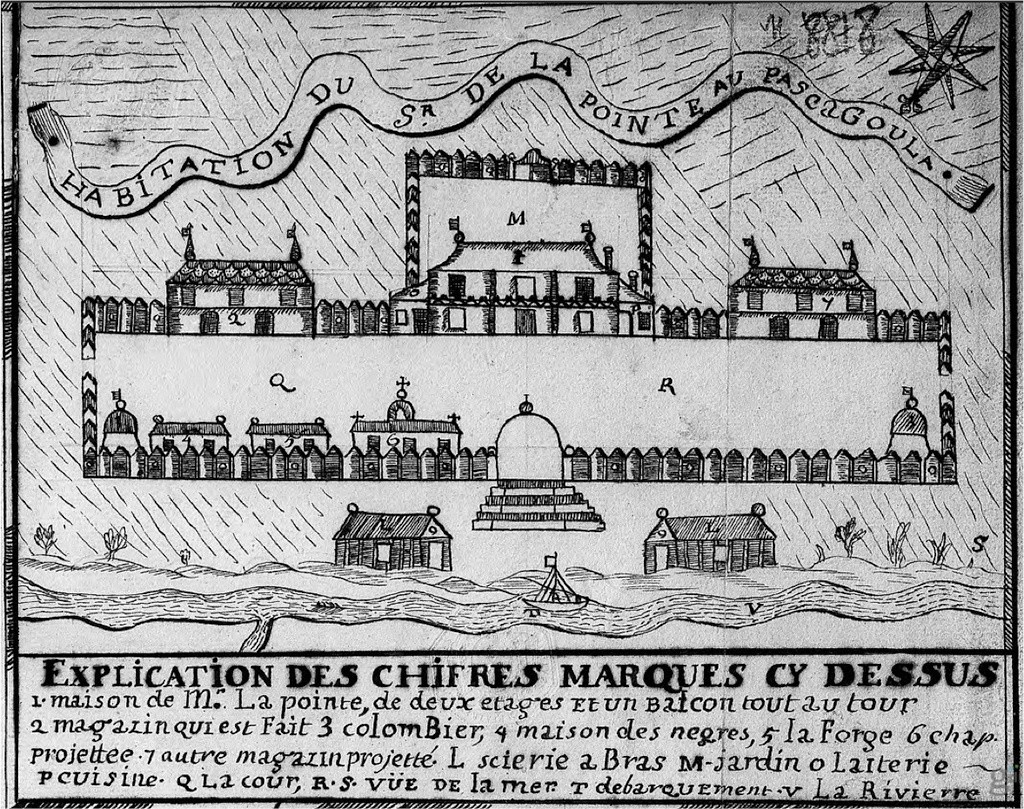 N 8818
HABITATION DU Sr. DE LA POINTE AU PASCAGOULA
M
1
2
7
Q
R
4
5
6
L
L
S
T
V
EXPLICATION DES CHIFRES MARQUES CY DESSUS
1. maison de Mr. La pointe, de deux etages ET un Balcon tout au tour
2 magazin qui est Fait 3 colomBier, 4 maison des negres, 5 la Forge 6 chap.
projettee. 7 autre magazin projetté. L scierie a Bras M-jardin o Laiterie
P cuisine. Q La cour, R. S. VÜE DE la mer T debarquement. V La Rivierre